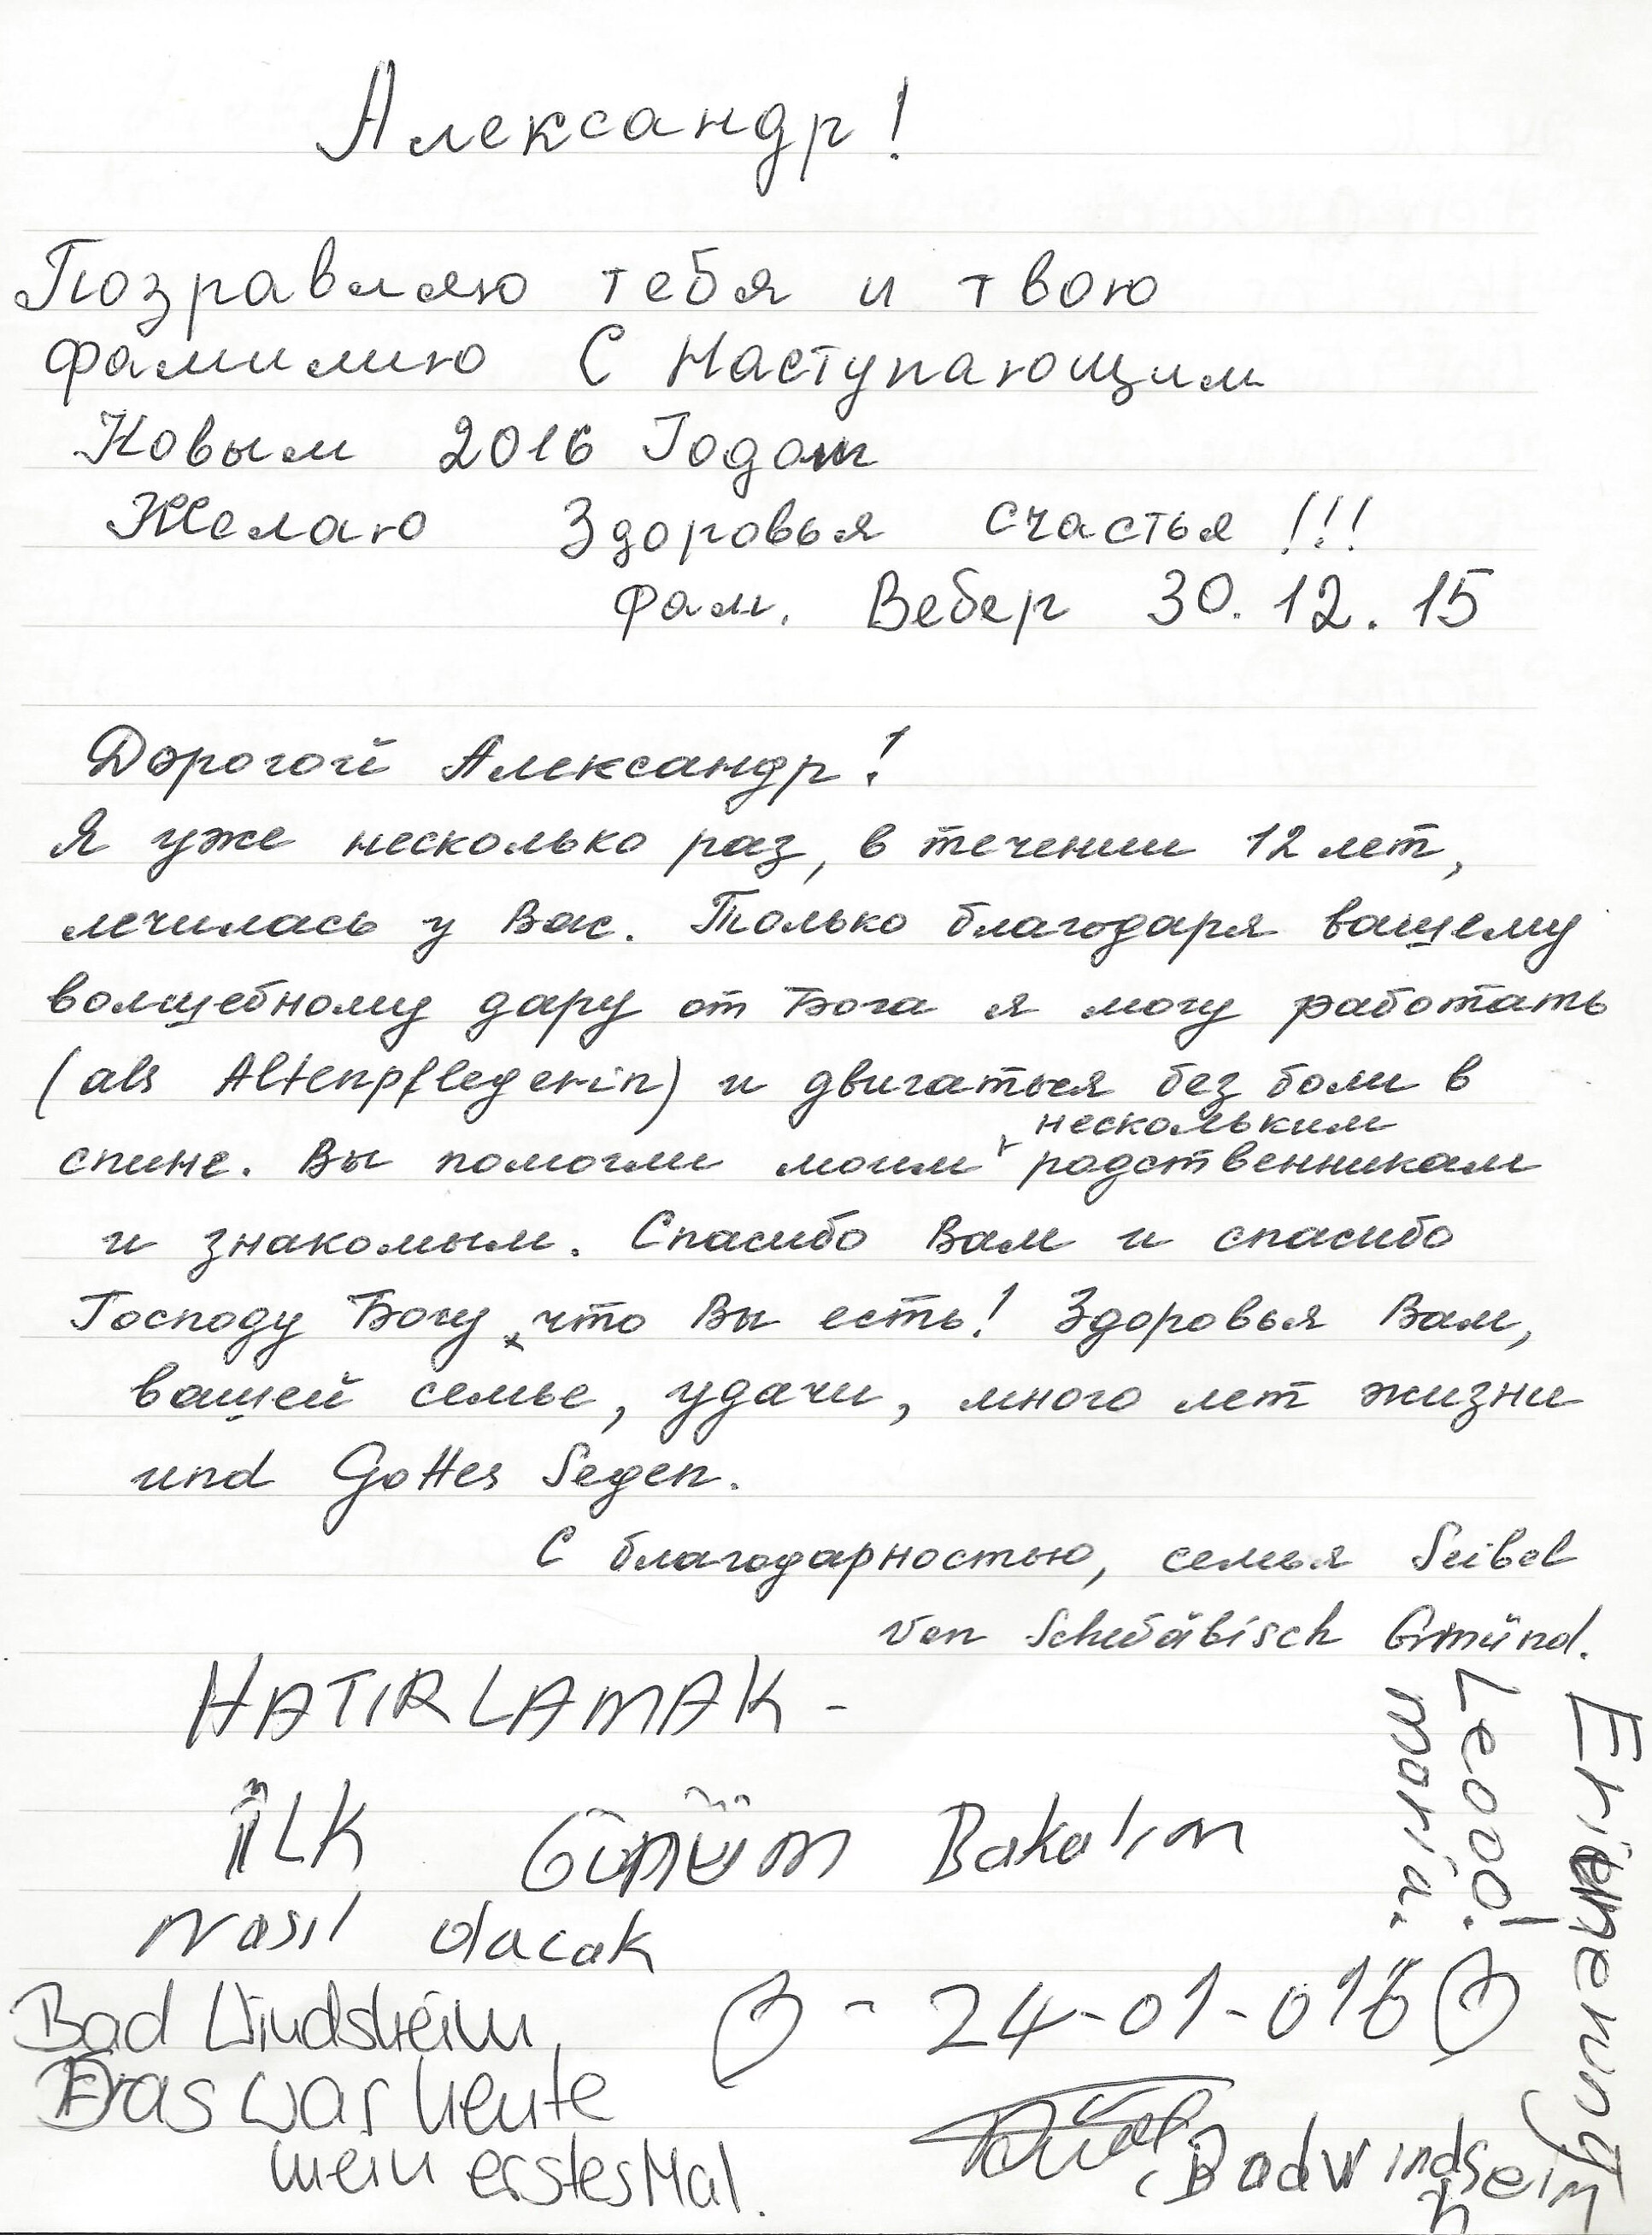 Александр!
Поздравляю тебя и твою
фамилию С Наступающим
Новым 2016 Годом
Желаю Здоровья счастья !!!
Фам. Вебер 30.12.15
Дорогой Александр!
Я уже несколько раз, в течении 12 лет,
лечилась у Вас. Только благодаря вашему
волшебному дару от Бога я могу работать
(als Altenpflegerin) и двигаться без боли в
спине. Вы помогли моим нескольким родственникам
и знакомым. Спасибо Вам и спасибо
Господу Богу, что Вы есть! Здоровья Вам,
вашей семье, удачи, много лет жизни
und Gottes Segen.
С благодарностью, семья Seibel
von Schwäbisch Gmünd.
HATIRLAMAK -
İLK Günüm Bakalım
Nasıl olacak
- 24-01-016
Bad Windsheim,
Das war heute
mein erstes Mal.
Bad Windseim
h
Erinenung
Leooo!
maria.